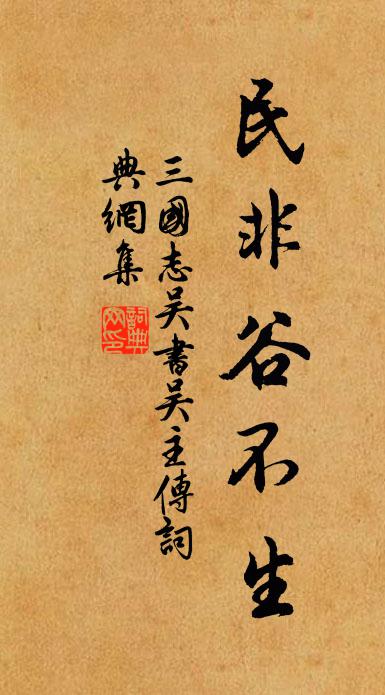 民非谷不生
三國志吴書吴主傳詞
典網集
詞典網印